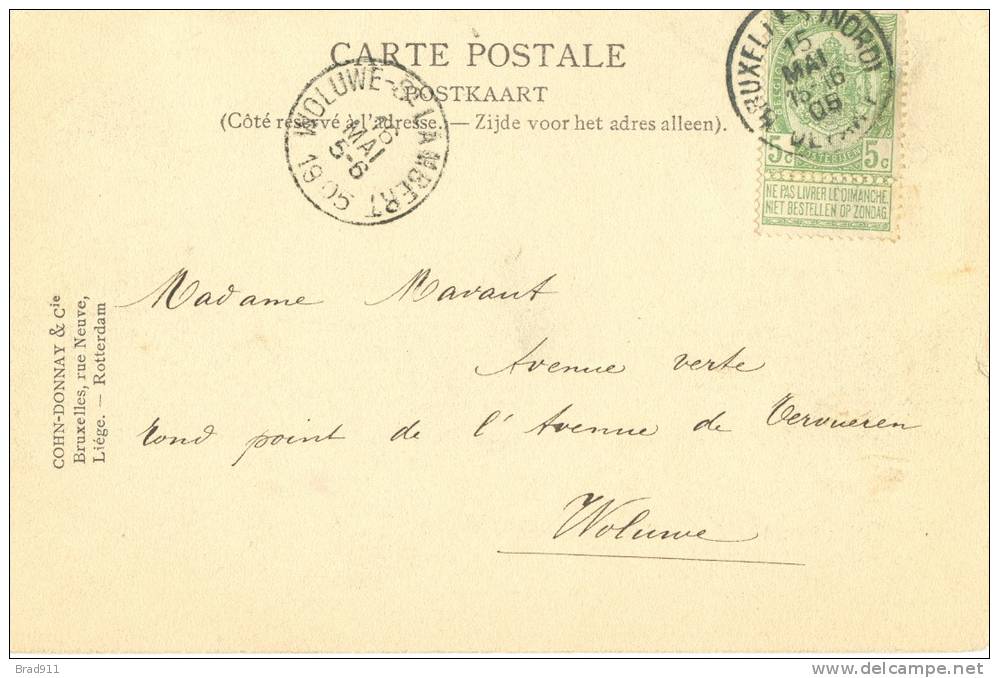 CARTE POSTALE
POSTKAART
(Côté réservé à l'adresse. — Zijde voor het adres alleen).
WOLUWE-St LAMBERT
MAI
5-6
1905
BRUXELLES (NORD)
15
MAI
15-16
05
DEPART
5c 5c
NE PAS LIVRER LE DIMANCHE.
NIET BESTELLEN OP ZONDAG.
COHN-DONNAY & Cie
Bruxelles, rue Neuve,
Liége. — Rotterdam
Madame Mavaut
Avenue verte
rond point de l'Avenue de Tervueren
Woluwe
Brad911
delcampe.net